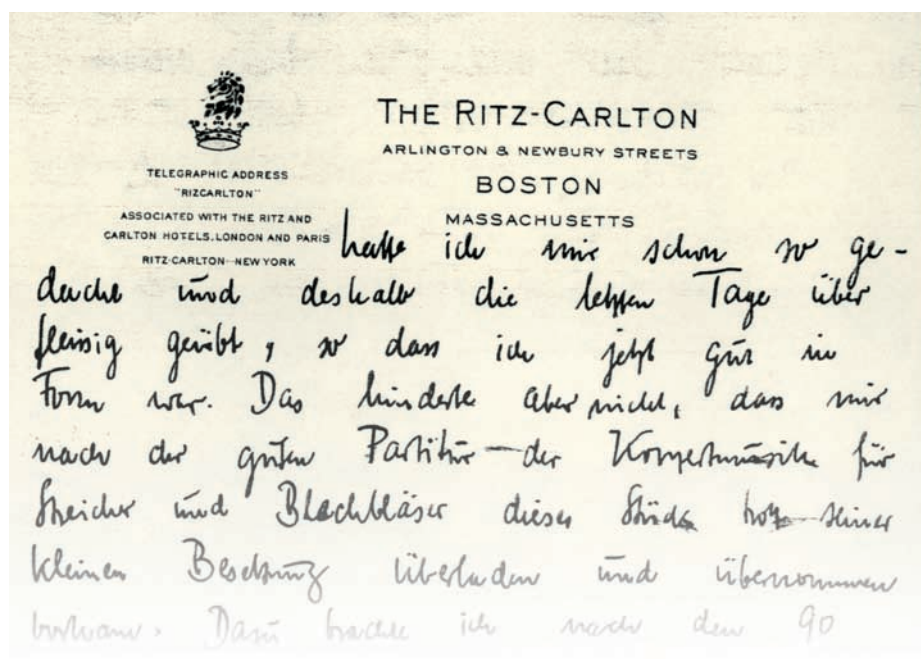 THE RITZ-CARLTON
ARLINGTON & NEWBURY STREETS
BOSTON
MASSACHUSETTS
TELEGRAPHIC ADDRESS
"RIZCARLTON"
ASSOCIATED WITH THE RITZ AND
CARLTON HOTELS, LONDON AND PARIS
RITZ-CARLTON-NEW YORK
hatte ich mir schon so ge-
dacht und deshalb die letzten Tage über
fleissig geübt, so dass ich jetzt gut in
Form war. Das hinderte aber nicht, dass mir
nach der guten Partitur der Konzertmusik für
Streicher und Blechbläser dieses Stück trotz seiner
kleinen Besetzung überladen und übernommen
vorkam. Dazu ich nach den 90